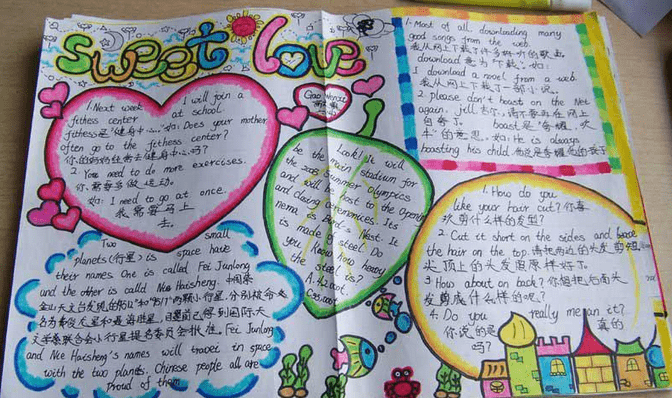 sweet love
1. Next week I will join a
fitness center at school
fitness是"健身中心"如: Does your mother
often go to the fitness center?
你的妈妈经常去健身中心吗?
2. You need to do more exercises.
你需要多做运动。
如: I need to go at once.
我需要马上
去。
Two small
planets (行星) in space have
their names One is called Fei Junlong
and the other is called Nie Haisheng.
Fei Junlong
and Nie Haisheng's names will travel in space
with the two plants. Chinese people all are
proud of them
Look! It will
be the main stadium for
the 2008 Summer Olympics
and will be host to the Opening
and closing ceremonies. Its
nema is Bird's Nest. It
is made of steel. Do
you know how heavy
the steel is?
A. 42.000t.
C. 45.000t
1. Most of all downloading many
good songs from the web.
我从网上下载了许多好听的歌曲
download 意为"下载", 如:
I download a novel from a web.
我从网上下载了一部小说。
2. please don't boast on the Net
again, jill 吉尔, 请不要再在网上
自夸了. boast是"夸耀, 吹
牛"的意思, 如: He is always
boasting his child.
1. How do you
like your hair cut? 你喜
欢剪什么样的发型?
2. Cut it short on the sides and
the hair on the top. 请把两边的头发剪短,
头顶上的头发
3. How about on back? 你想把后面头
发剪成什么样的呢?
4. Do you really mean it?
你说的是 真的
吗?